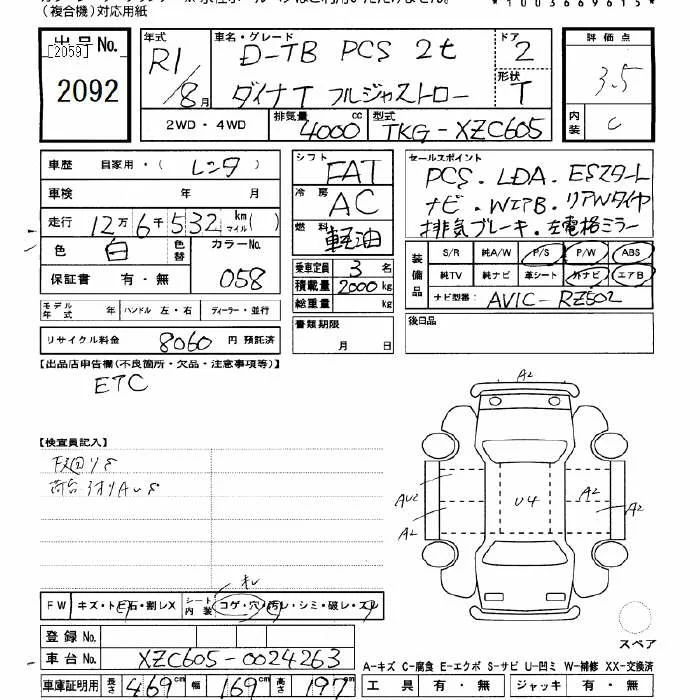 (複合機)対応用紙
*1003669615*
出品No.
[2059]
2092
年式 R1/8月
車名・グレード D-TB PCS 2t
ダイナT フルジャストロー
ドア 2
形状 T
2WD・4WD
排気量 4000 cc
型式 TKG-XZC605
評価点
3.5
内装 C
車歴 自家用・( レンタ
車検 年 月
走行 12万6千532 km マイル( )
色 白 色替 カラーNo. 058
保証書 有・無
シフト FAT
冷房 AC
燃料 軽油
乗車定員 3名
積載量 2000kg
総重量 kg
書類期限
月 日
セールスポイント
PCS. LDA. ESスタート
ナビ. WエアB. リアWタイヤ
排気ブレーキ. 左電格ミラー
装備品
S/R 純A/W P/S P/W ABS
純TV 純ナビ 革シート 外ナビ エアB
ナビ型番( AVIC-RZ502
後日品
モデル年式 年 ハンドル 左・右 ディーラー・並行
リサイクル料金 8060 円 預託済
【出品店申告欄(不良箇所・欠品・注意事項等)】
ETC
【検査員記入】
A2
AU2
A2
U4
A2
A2
FW キズ・トビ石・割レX シート内装 コゲ・穴・汚レ・シミ・破レ・スレ
登録No.
車台No. XZC605-0024263
車庫証明用 長さ 469cm 幅 169cm 高さ 197cm
スペア
A-キズ C-腐食 E-エクボ S-サビ U-凹ミ W-補修 XX-交換済
工具 有・無 ジャッキ 有・無